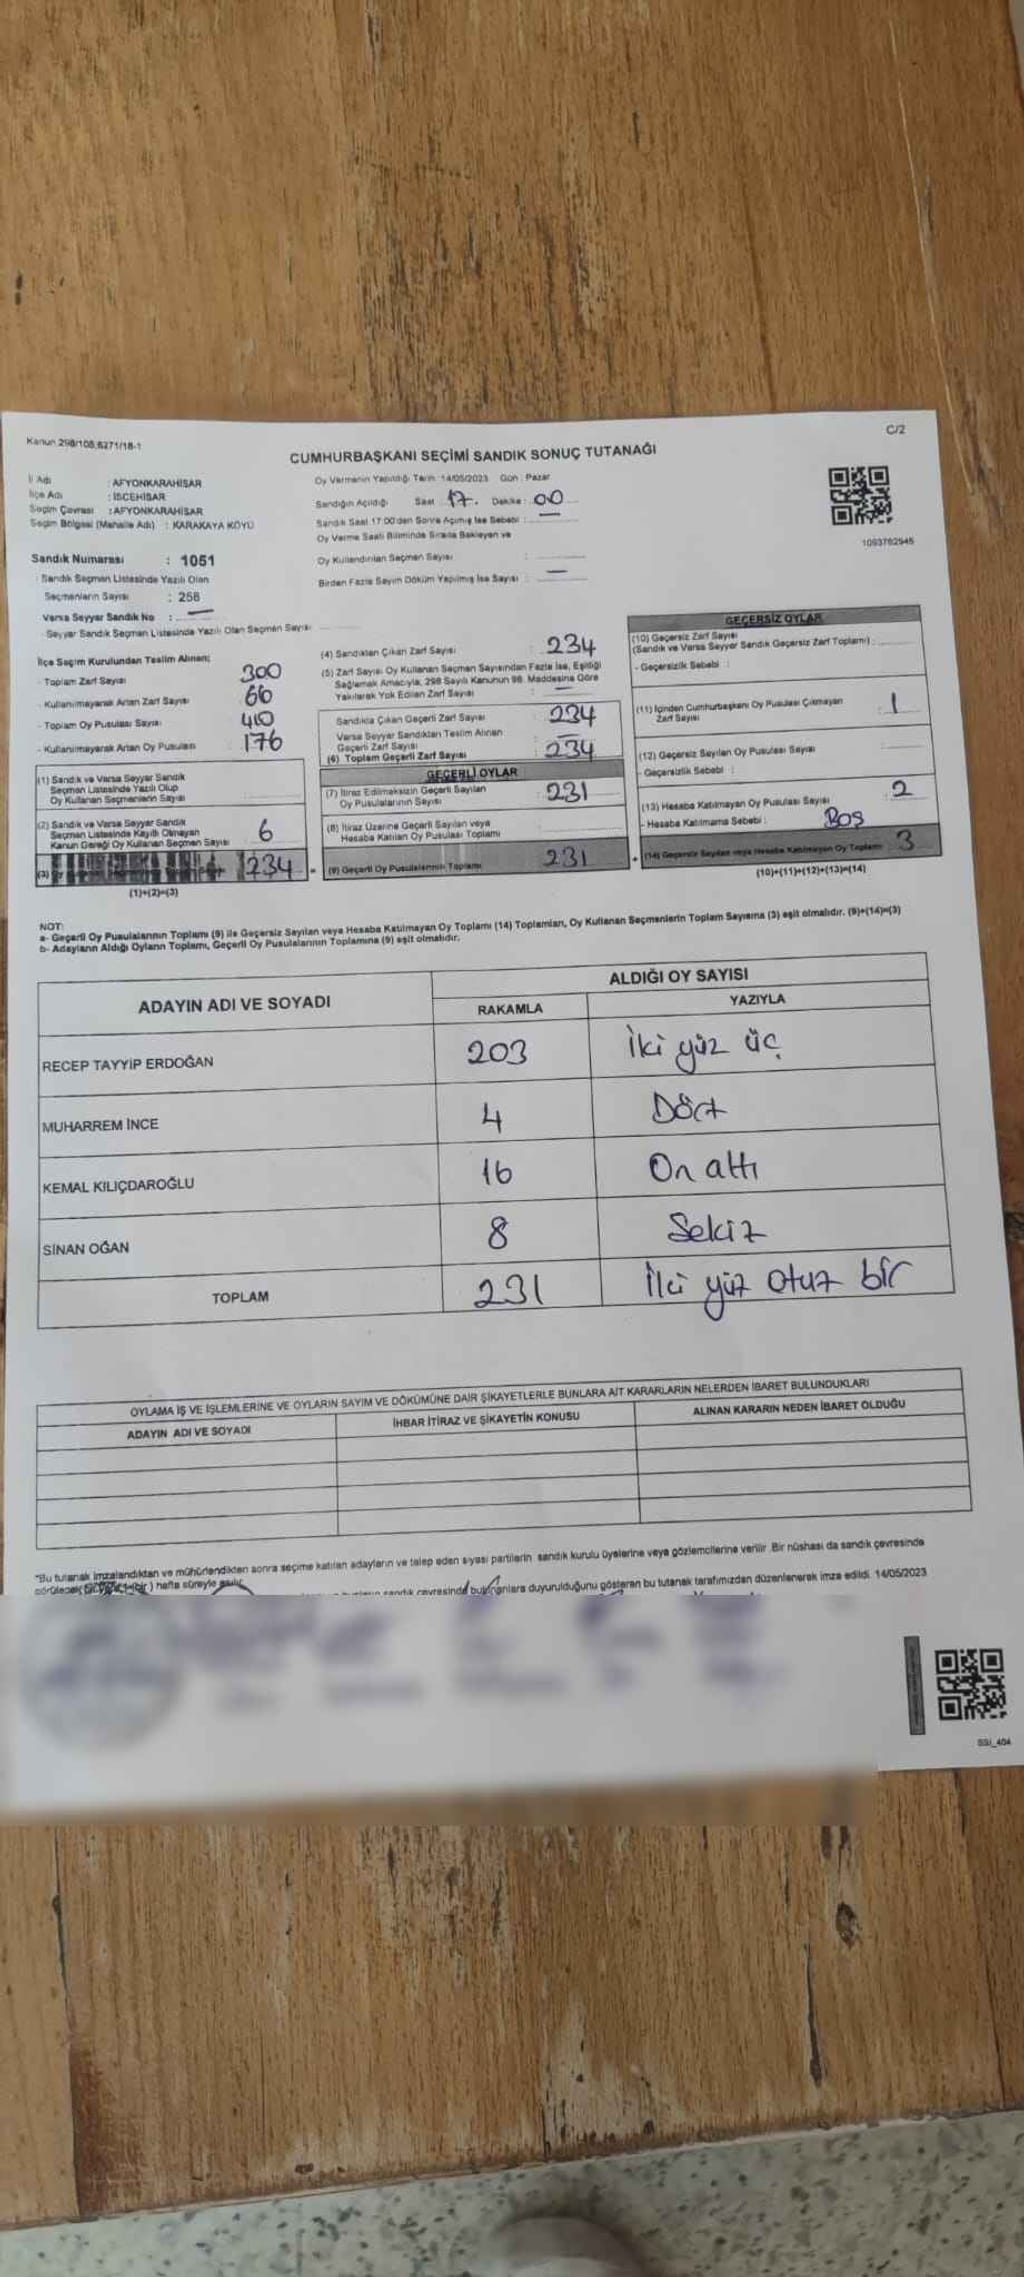 Kanun 298/105,6271/18-1
C/2
CUMHURBAŞKANI SEÇİMİ SANDIK SONUÇ TUTANAĞI
İl Adı : AFYONKARAHİSAR
İlçe Adı : İSCEHİSAR
Seçim Çevresi : AFYONKARAHİSAR
Seçim Bölgesi (Mahalle Adı) : KARAKAYA KÖYÜ
Sandık Numarası : 1051
Sandık Seçmen Listesinde Yazılı Olan
Seçmenlerin Sayısı : 256
Varsa Seyyar Sandık No : —
Seyyar Sandık Seçmen Listesinde Yazılı Olan Seçmen Sayısı
Oy Vermenin Yapıldığı Tarih :14/05/2023 Gün : Pazar
Sandığın Açıldığı Saat 17. Dakika : 00
Sandık Saat 17:00'den Sonra Açılmış İse Sebebi : —
Oy Verme Saati Bitiminde Sırada Bekleyen ve
Oy Kullandırılan Seçmen Sayısı :
Birden Fazla Sayım Döküm Yapılmış İse Sayısı : —
1093762945
İlçe Seçim Kurulundan Teslim Alınan;
- Toplam Zarf Sayısı 300
- Kullanılmayarak Artan Zarf Sayısı 66
- Toplam Oy Pusulası Sayısı 410
- Kullanılmayarak Artan Oy Pusulası 176
(1) Sandık ve Varsa Seyyar Sandık
Seçmen Listesinde Yazılı Olup
Oy Kullanan Seçmenlerin Sayısı
(2) Sandık ve Varsa Seyyar Sandık
Seçmen Listesinde Kayıtlı Olmayan
Kanun Gereği Oy Kullanan Seçmen Sayısı 6
(3) 234
(1)+(2)=(3)
(4) Sandıktan Çıkan Zarf Sayısı : 234
(5) Zarf Sayısı Oy Kullanan Seçmen Sayısından Fazla İse, Eşitliği
Sağlamak Amacıyla, 298 Sayılı Kanunun 98. Maddesine Göre
Yakılarak Yok Edilen Zarf Sayısı : —
Sandıkta Çıkan Geçerli Zarf Sayısı : 234
Varsa Seyyar Sandıktan Teslim Alınan
Geçerli Zarf Sayısı : —
(6) Toplam Geçerli Zarf Sayısı 234
GEÇERLİ OYLAR
(7) İtiraz Edilmeksizin Geçerli Sayılan
Oy Pusulalarının Sayısı 231
(8) İtiraz Üzerine Geçerli Sayılan veya
Hesaba Katılan Oy Pusulası Toplamı
= (9) Geçerli Oy Pusulalarının Toplamı 231
GEÇERSİZ OYLAR
(10) Geçersiz Zarf Sayısı
(Sandık ve Varsa Seyyar Sandık Geçersiz Zarf Toplamı) :
- Geçersizlik Sebebi :
(11) İçinden Cumhurbaşkanı Oy Pusulası Çıkmayan
Zarf Sayısı 1
(12) Geçersiz Sayılan Oy Pusulası Sayısı
- Geçersizlik Sebebi :
(13) Hesaba Katılmayan Oy Pusulası Sayısı 2
- Hesaba Katılmama Sebebi : Boş
+ (14) Geçersiz Sayılan veya Hesaba Katılmayan Oy Toplamı 3
(10)+(11)+(12)+(13)=(14)
NOT:
a- Geçerli Oy Pusulalarının Toplamı (9) ile Geçersiz Sayılan veya Hesaba Katılmayan Oy Toplamı (14) Toplamları, Oy Kullanan Seçmenlerin Toplam Sayısına (3) eşit olmalıdır. (9)+(14)=(3)
b- Adayların Aldığı Oyların Toplamı, Geçerli Oy Pusulalarının Toplamına (9) eşit olmalıdır.
ADAYIN ADI VE SOYADI
ALDIĞI OY SAYISI
RAKAMLA YAZIYLA
RECEP TAYYİP ERDOĞAN 203 İki yüz üç
MUHARREM İNCE 4 Dört
KEMAL KILIÇDAROĞLU 16 On altı
SİNAN OĞAN 8 Sekiz
TOPLAM 231 İki yüz otuz bir
OYLAMA İŞ VE İŞLEMLERİNE VE OYLARIN SAYIM VE DÖKÜMÜNE DAİR ŞİKAYETLERLE BUNLARA AİT KARARLARIN NELERDEN İBARET BULUNDUKLARI
ADAYIN ADI VE SOYADI İHBAR İTİRAZ VE ŞİKAYETİN KONUSU ALINAN KARARIN NEDEN İBARET OLDUĞU
"Bu tutanak imzalandıktan ve mühürlendikten sonra seçime katılan adayların ve talep eden siyasi partilerin sandık kurulu üyelerine veya gözlemcilerine verilir. Bir nüshası da sandık çevresinde
hafta süreyle asılır. sandık çevresinde bulunanlara duyurulduğunu gösteren bu tutanak tarafımızdan düzenlenerek imza edildi. 14/05/2023
SSİ_404